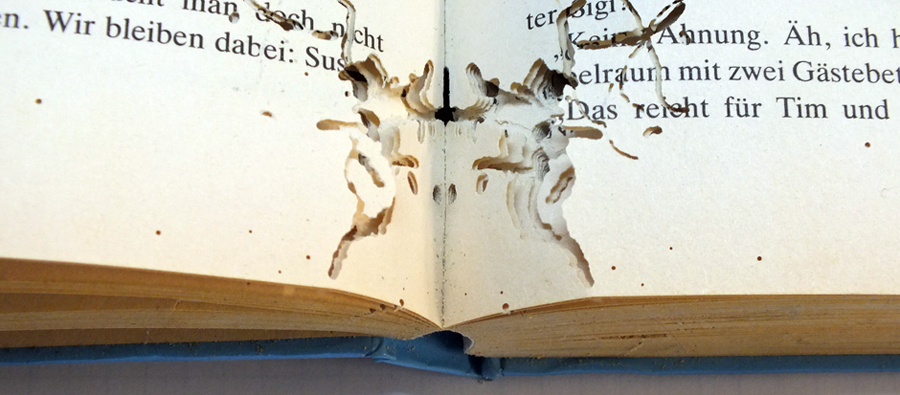 man doch nicht
en. Wir bleiben dabei: Sus
ter Sigi?
„Keine Ahnung. Äh, ich h
selraum mit zwei Gästebet
„Das reicht für Tim und